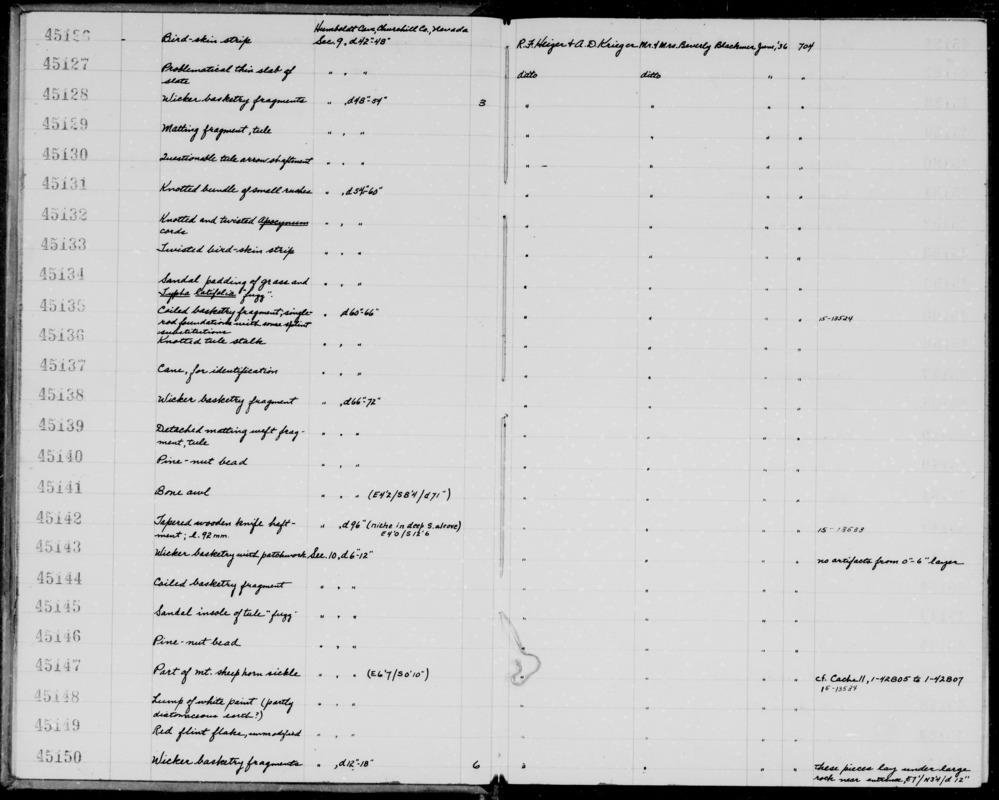 Humboldt Cave, Churchill Co., Nevada
45126 Bird-skin strip Sec. 9, d42"-48" R.F. Heizer & A.D. Krieger Mr. & Mrs. Beverly Blackmer June, '36 704
45127 Problematical thin slab of " , " , " ditto ditto " "
slate
45128 Wicker basketry fragments " , d48"-54" 3 " " " "
45129 Matting fragment, tule " , " , " " " " "
45130 Questionable tule arrow shaftment " , " , " " " " "
45131 Knotted bundle of small rushes " , d54"-60" " " " "
45132 Knotted and twisted Apocynum " , " , " " " " "
cords
45133 Twisted bird-skin strip " , " , " " " " "
45134 Sandal padding of grass and " , " , " " " " "
Typha latifolia "fuzz".
45135 Coiled basketry fragment, single- " , d60"-66" " " " " 15-13524
rod foundation with some splint
substitutions
45136 Knotted tule stalk " , " , " " " " "
45137 Cane, for identification " , " , " " " " "
45138 Wicker basketry fragment " , d66"-72" " " " "
45139 Detached matting weft frag- " , " , " " " " "
ment, tule
45140 Pine-nut bead " , " , " " " " "
45141 Bone awl " , " , " (E4'2/S8'4/d71") " " " "
45142 Tapered wooden knife haft- " , d96" (niche in deep S. alcove) " " " " 15-13533
ment; l. 92 mm. E4'0/S12'6
45143 Wicker basketry with patchwork Sec. 10, d6"-12" " " " " no artifacts from 0"-6" layer
45144 Coiled basketry fragment " , " , " " " " "
45145 Sandal insole of tule "fuzz" " , " , " " " " "
45146 Pine-nut bead " , " , " " " " "
45147 Part of mt. sheep horn sickle " , " , " (E6'7/S0'10") " " " " cf. Cache 11, 1-42805 to 1-42807
15-13534
45148 Lump of white paint (partly " , " , " " " " "
diatomaceous earth?)
45149 Red flint flake, unmodified " , " , " " " " "
45150 Wicker basketry fragments " , d12"-18" 6 " " " " these pieces lay under large
rock near entrance, E7'/N3'4/d 12"